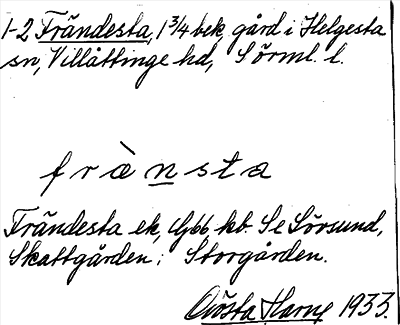 1-2 Frändesta, 1 3/4 bek, gård i Helgesta
sn, Villåttinge hd, Sörml. l.
frànsta
Frändesta ek, G66 kb. Se Sörsund,
Skattgården; Storgården.
Gösta Harne 1933.